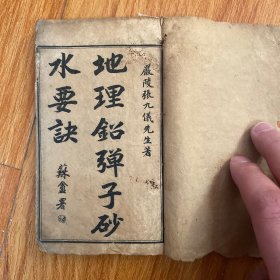 嚴陵張九儀先生著
地理鉛彈子砂
水要訣
蘇盦署